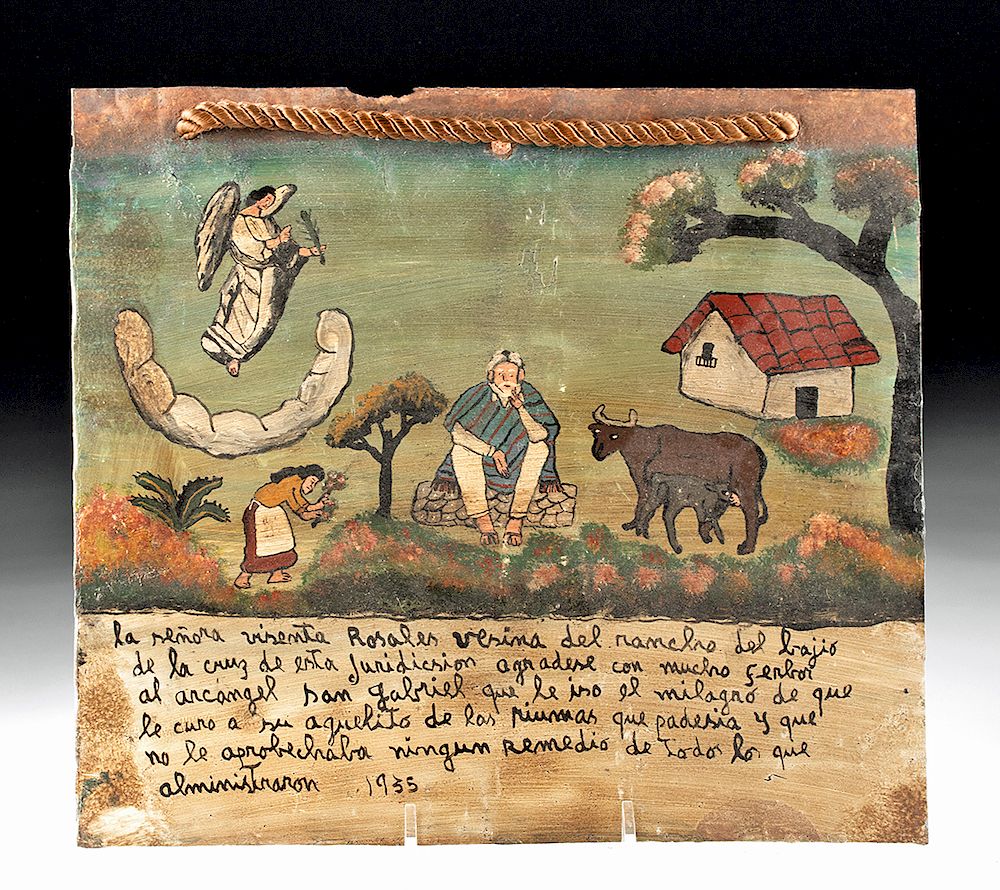 la señora visenta Rosales vesina del rancho del bajio
de la cruz de esta juridicsion agradese con mucho ferbor
al arcángel san gabriel que le iso el milagro de que
le curo a su aguelito de las riumas que padesia y que
no le aprobechaba ningun remedio de todos los que
alministraron 1935